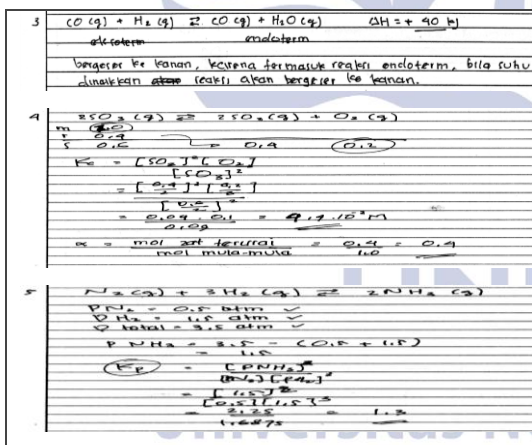 3 CO (g) + H₂ (g) ⇄ CO (g) + H₂O (g) ΔH = + 40 kj
eksoterm endoterm
bergeser ke kanan, karena termasuk reaksi endoterm, bila suhu
dinaikkan reaksi akan bergeser ke kanan.
4 2SO₃ (g) ⇄ 2SO₂ (g) + O₂ (g)
m 1.0
r 0.4
s 0.6 0.4 0.2
Kc = [SO₂]² [O₂]
[SO₃]²
= [0.4/2]² [0.2/2]
[0.6/2]²
= 0.04 . 0.1 = 4.4 . 10⁻² M
0.09
α = mol zat terurai = 0.4 = 0.4
mol mula-mula 1.0
5 N₂ (g) + 3H₂ (g) ⇄ 2NH₃ (g)
P N₂ = 0.5 atm ✓
P H₂ = 1.5 atm ✓
P total = 3.5 atm ✓
P NH₃ = 3.5 - (0.5 + 1.5)
= 1.5
Kp = [PNH₃]²
[PN₂] [PH₂]³
= [1.5]²
[0.5] [1.5]³
= 2.25 = 1.3
1.6875